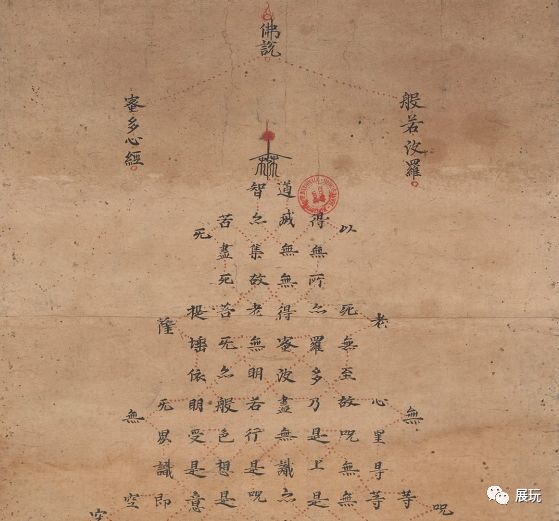 佛說
般若波羅
蜜多心經
呪
無等
老心罣㝵等
以死無至故呪無無
得無所亦羅多乃是上是
道滅無無得蜜波盡無識亦
智亦集故老無明若行是呪
苦盡死苦死亦般色想是
死提埵依明受是意
薩死界識即
無空
空
展玩